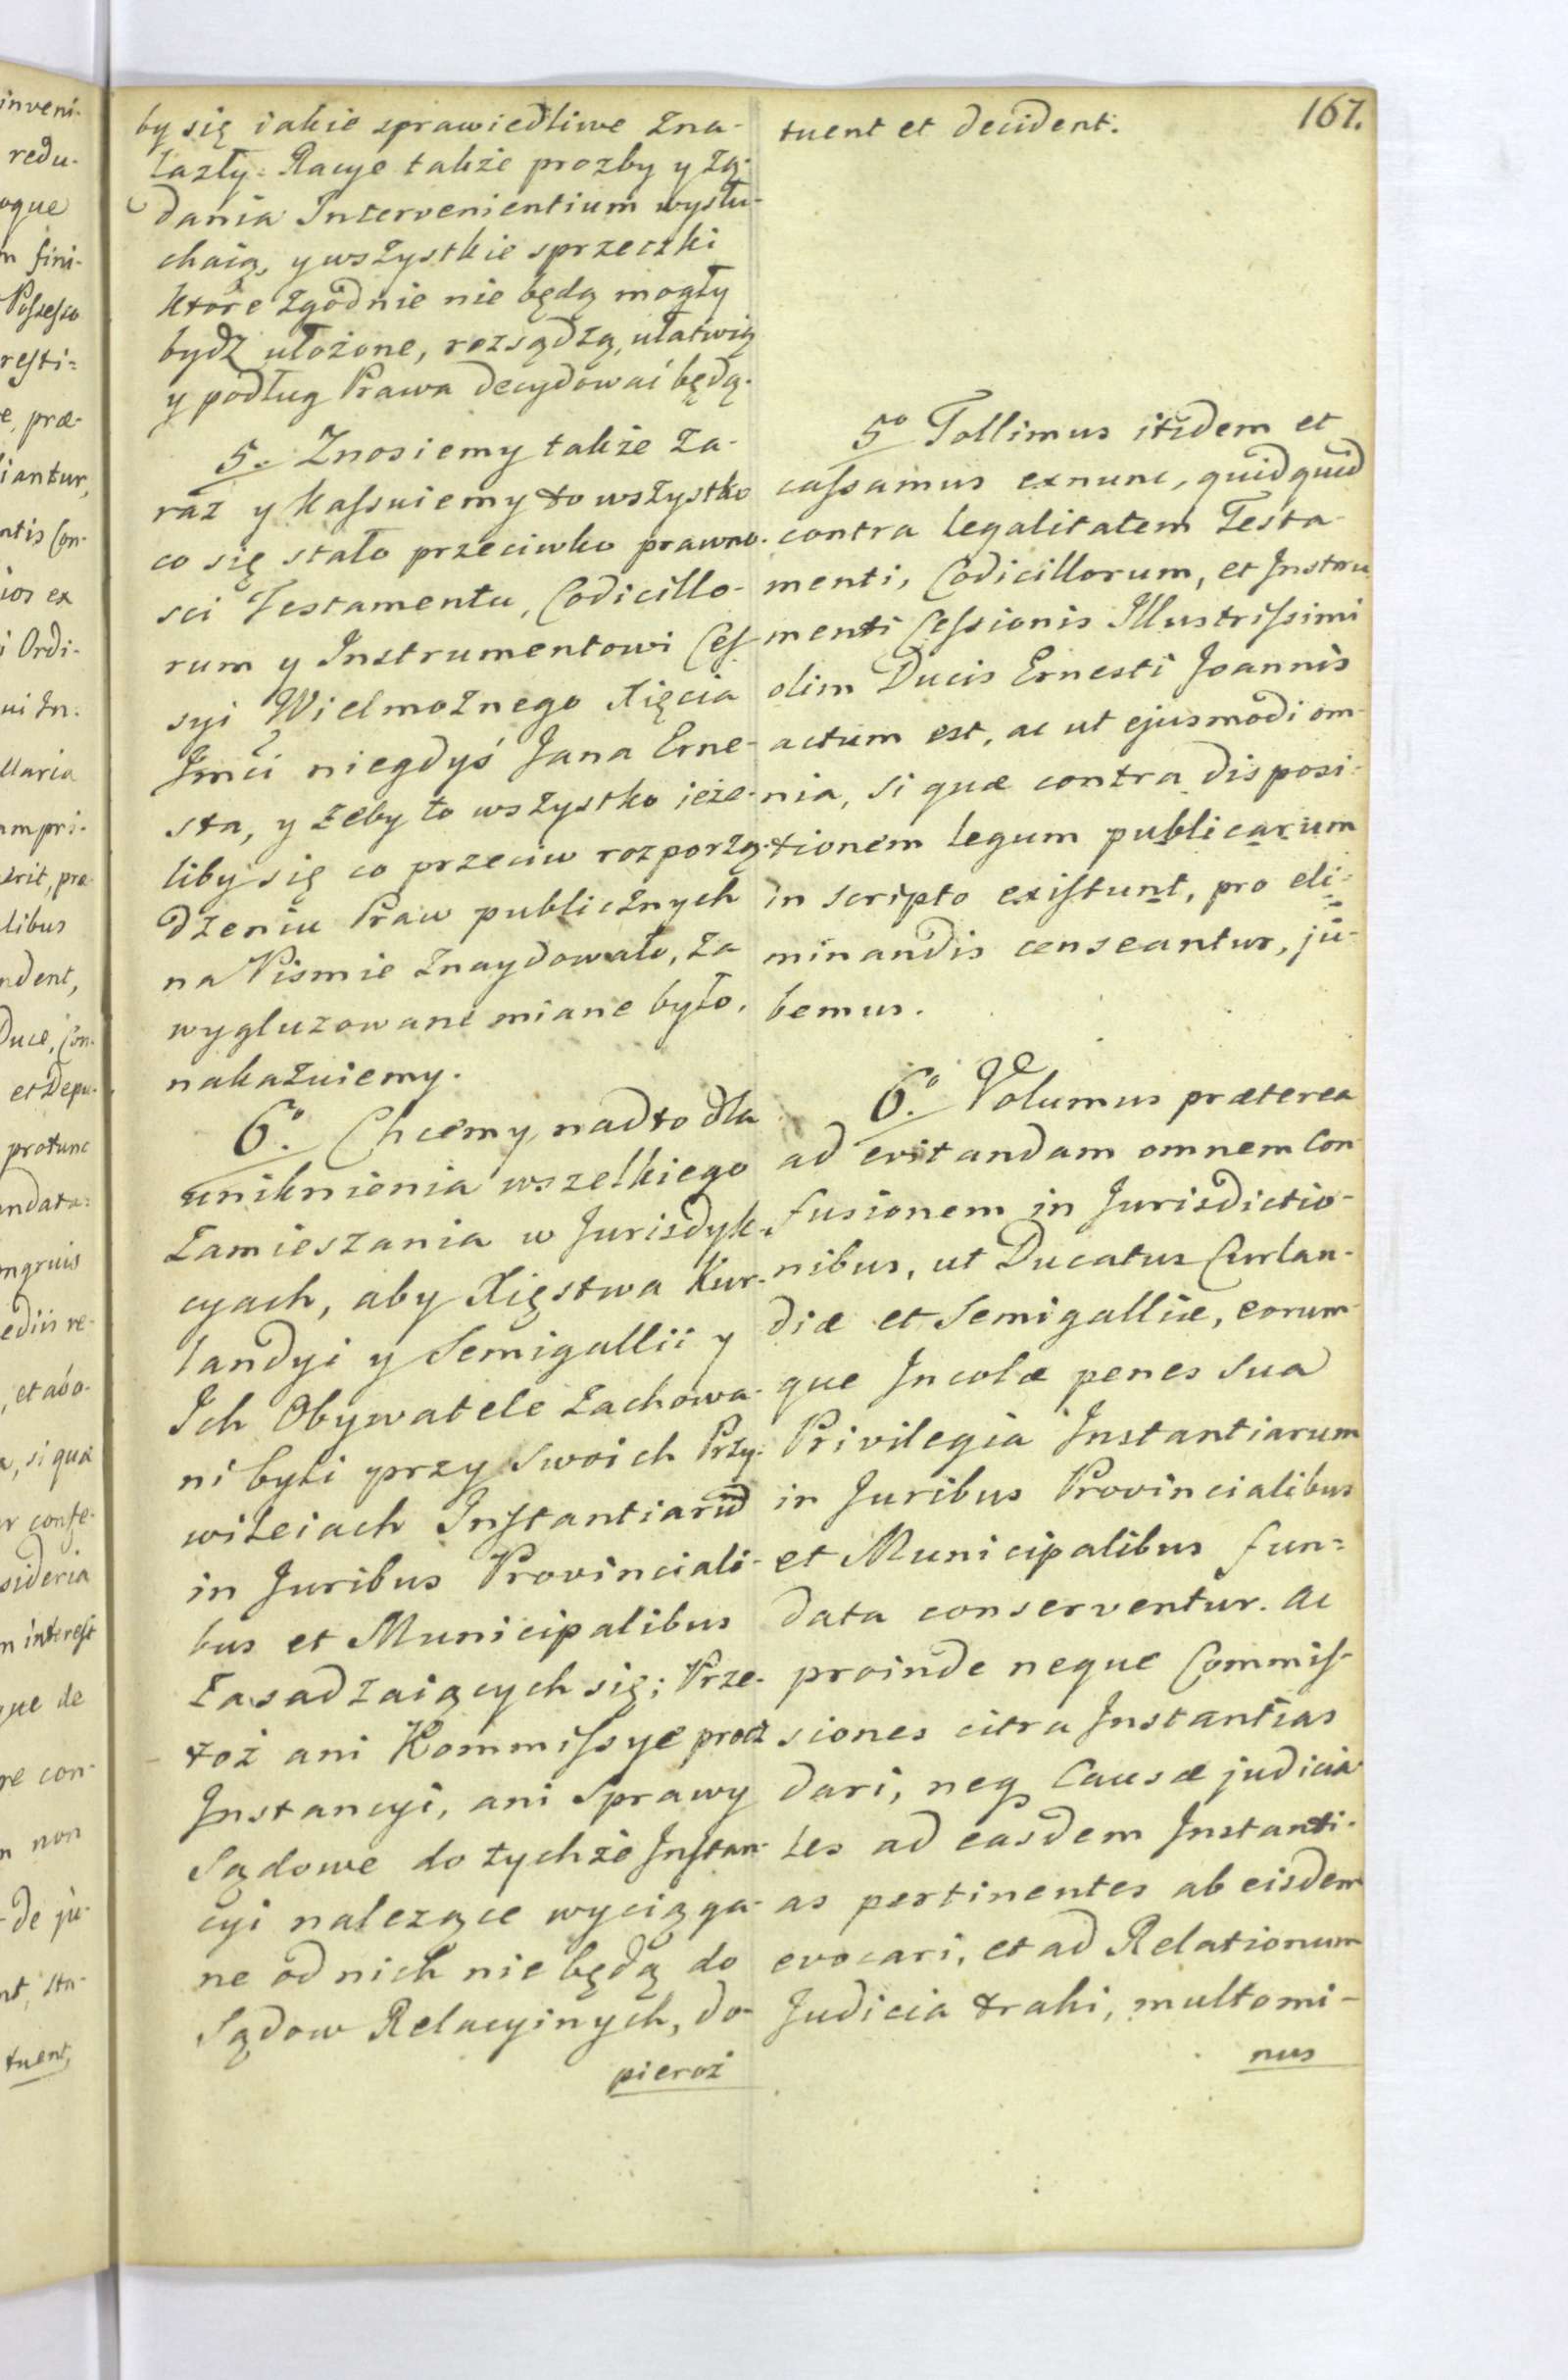 167.
by się iakie sprawiedliwe zna-
lazły. Racye także prozby y żą-
dania Intervenientium wysłu-
chaią, y wszystkie sprzeczki
które zgodnie nie będą mogły
bydz ułożone, rozsądzą, ułatwią
y podług Prawa decydować będą.
5. Znosiemy także za-
raz y kaſsuiemy to wszystko
co się stało przeciwko prawno-
sci Testamentu, Codicillo-
rum y Instrumentowi Ceſ-
syi Wielmożnego Xięcia
Jmći niegdyś Jana Erne-
sta, y żeby to wszystko ieże-
liby się co przeciw rozporzą-
dzeniu Praw publicznych
na Pismie znaydowało, za
wygluzowane miane było,
nakazuiemy.
6.° Chcemy nadto dla
uniknienia wszelkiego
zamieszania w Jurisdyk-
cyach, aby Xięstwa Kur-
landyi y Semigallii y
Ich Obywatele zachowa-
ni byli przy swoich Przy-
wileiach Inſtantiarum
in Juribus Provinciali-
bus et Municipalibus
zasadzaiących się; Prze-
toż ani Kommiſsye procz
Instancyi, ani Sprawy
Sądowe do tychże Inſtan-
cyi nalezące wyciąga-
ne od nich nie będą do
Sądow Relacyinych, do-
pieroż
tuent et decident.
5° Tollimus itidem et
caſsamus exnunc, quidquid
contra legalitatem Testa-
menti, Codicillorum, et Instru-
menti Ceſsionis Illustriſsimi
olim Ducis Ernesti Joannis
actum est, ac ut ejusmodi om-
nia, si quæ contra disposi-
tionem legum publicarum
in scripto exiſtunt, pro eli-
minandis censeantur, ju-
bemus.
6.° Volumus præterea
ad evitandam omnem Con-
fusionem in Jurisdictio-
nibus, ut Ducatus Curlan-
diæ et Semigalliæ, eorum-
que Incolæ penes sua
Privilegia Instantiarum
in Juribus Provincialibus
et Municipalibus fun-
data conserventur. Ac
proinde neque Commiſ-
siones citra Instantias
dari, neq Causæ judicia-
les ad easdem Instanti-
as pertinentes ab eisdem
evocari, et ad Relationum
Judicia trahi, multomi-
nus